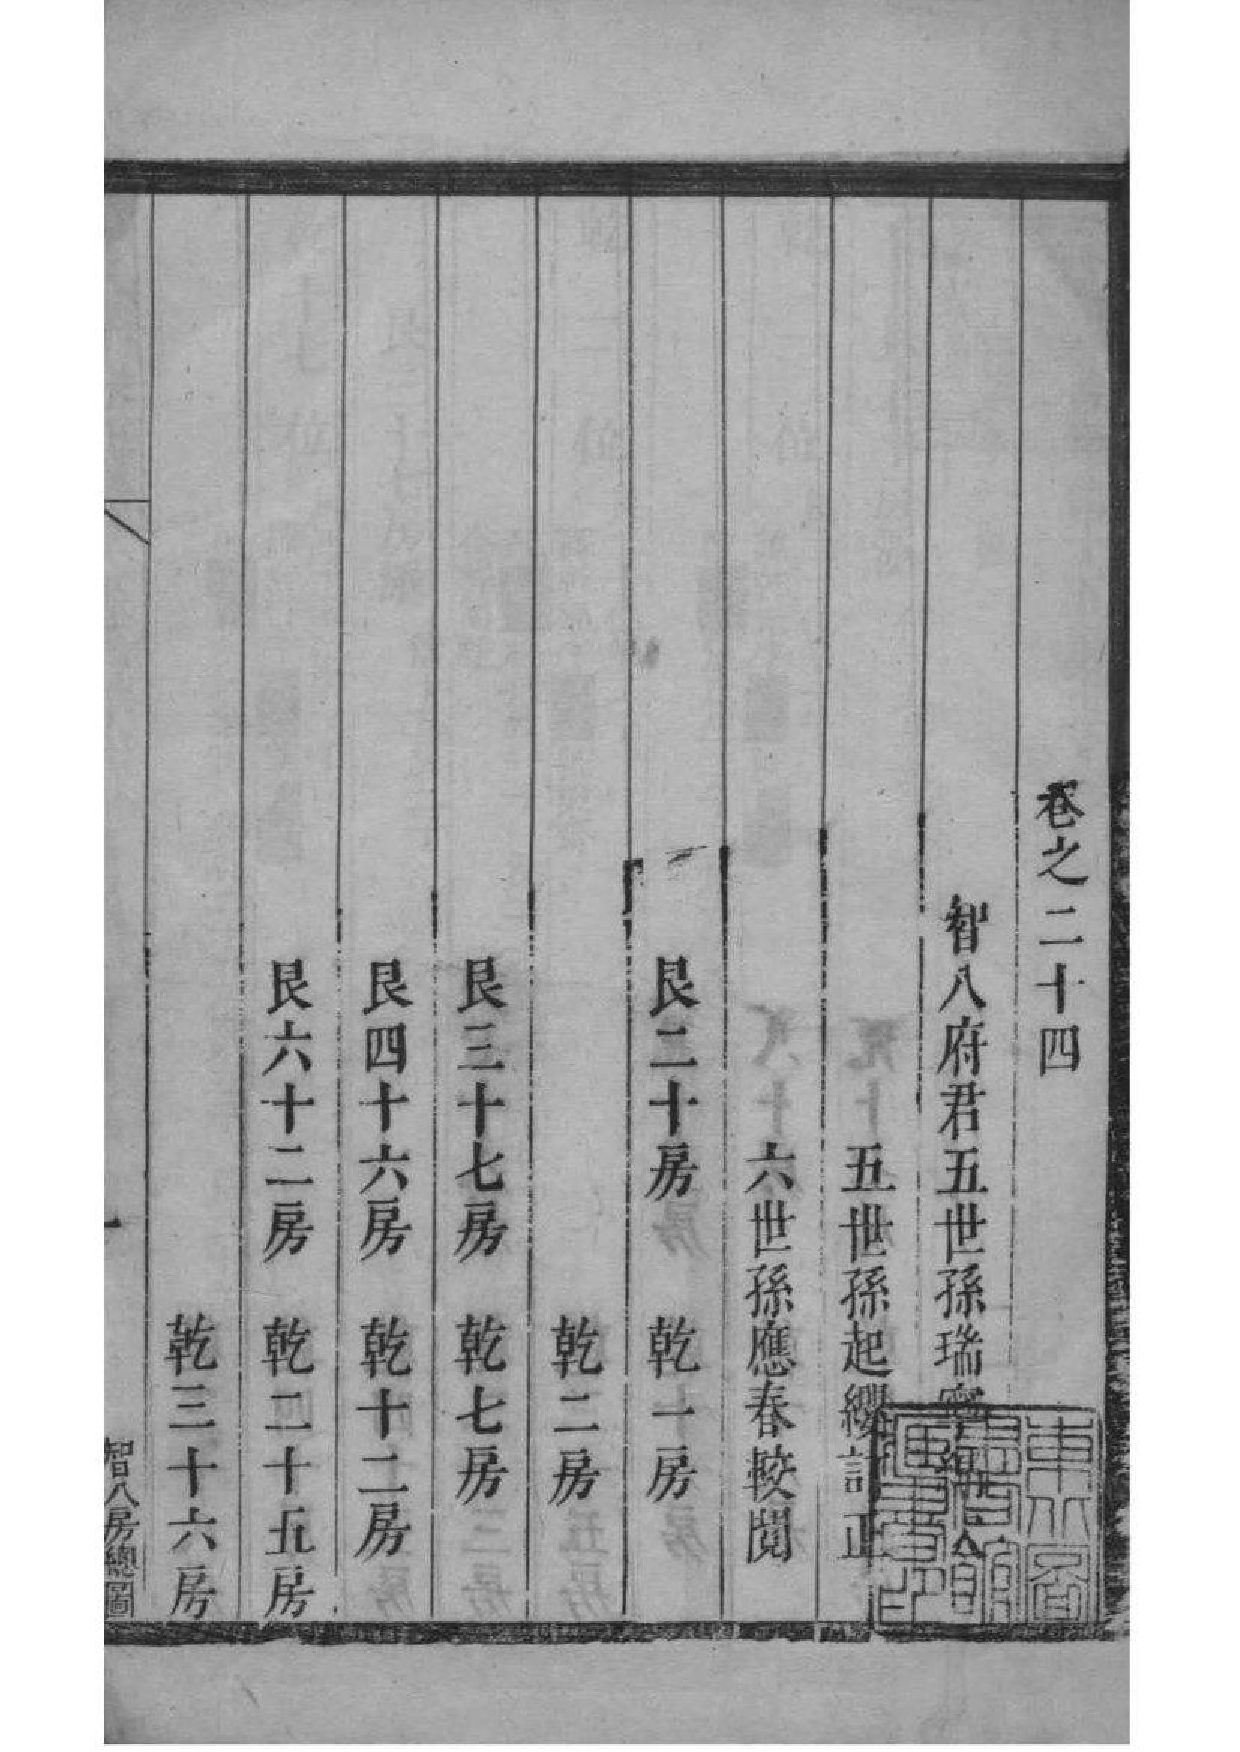 卷之二十四
智八府君五世孫瑞
五世孫起纓訂正
六世孫應春較閱
艮二十房 乾一房
乾二房
艮三十七房 乾七房
艮四十六房 乾十二房
艮六十二房 乾二十五房
乾三十六房
智八房總圖
一